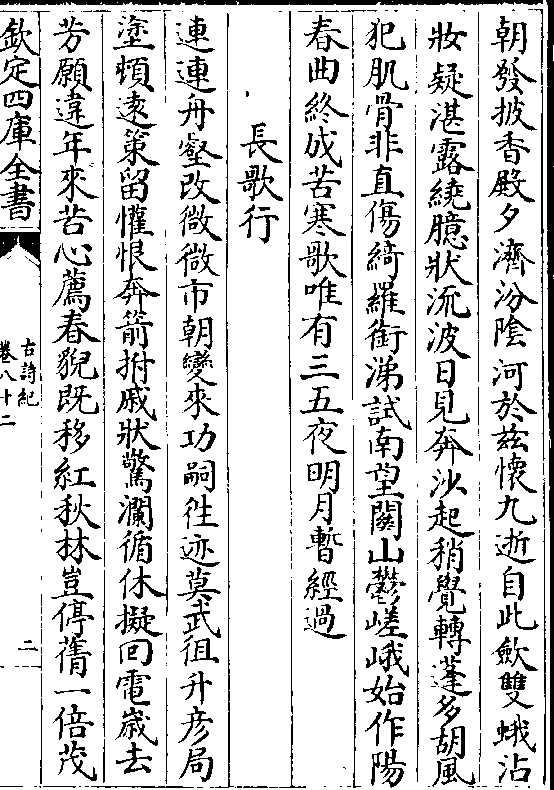 朝發披香殿夕濟汾陰河於兹懷九逝自此歛雙蛾沾
妝疑湛露繞臆狀流波日見奔沙起稍覺轉蓬多胡風
犯肌骨非直傷綺羅銜涕試南望關山鬱嵯峨始作陽
春曲終成苦寒歌唯有三五夜明月暫經過
長歌行
連連舟壑改微微市朝變來功嗣徃迹莫武徂升彦局
塗頓逺策留懽恨奔箭拊戚狀驚瀾循休擬回電歲去
芳願違年來苦心薦春貌既移紅秋林豈停蒨一倍茂
欽定四庫全書
古詩紀
卷八十二
二